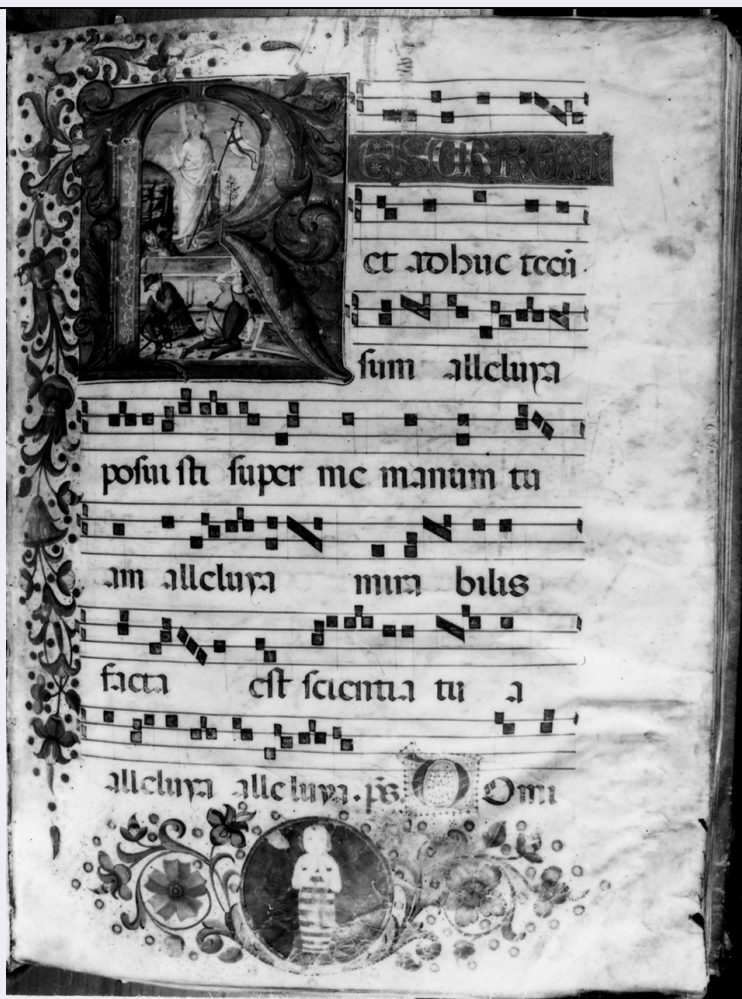 RESURREXI
et adhuc tecū
sum alleluya
posui sti super me manum tu
am alleluya mira bilis
facta est scientia tu a
alleluya alleluya. ps. DOmi